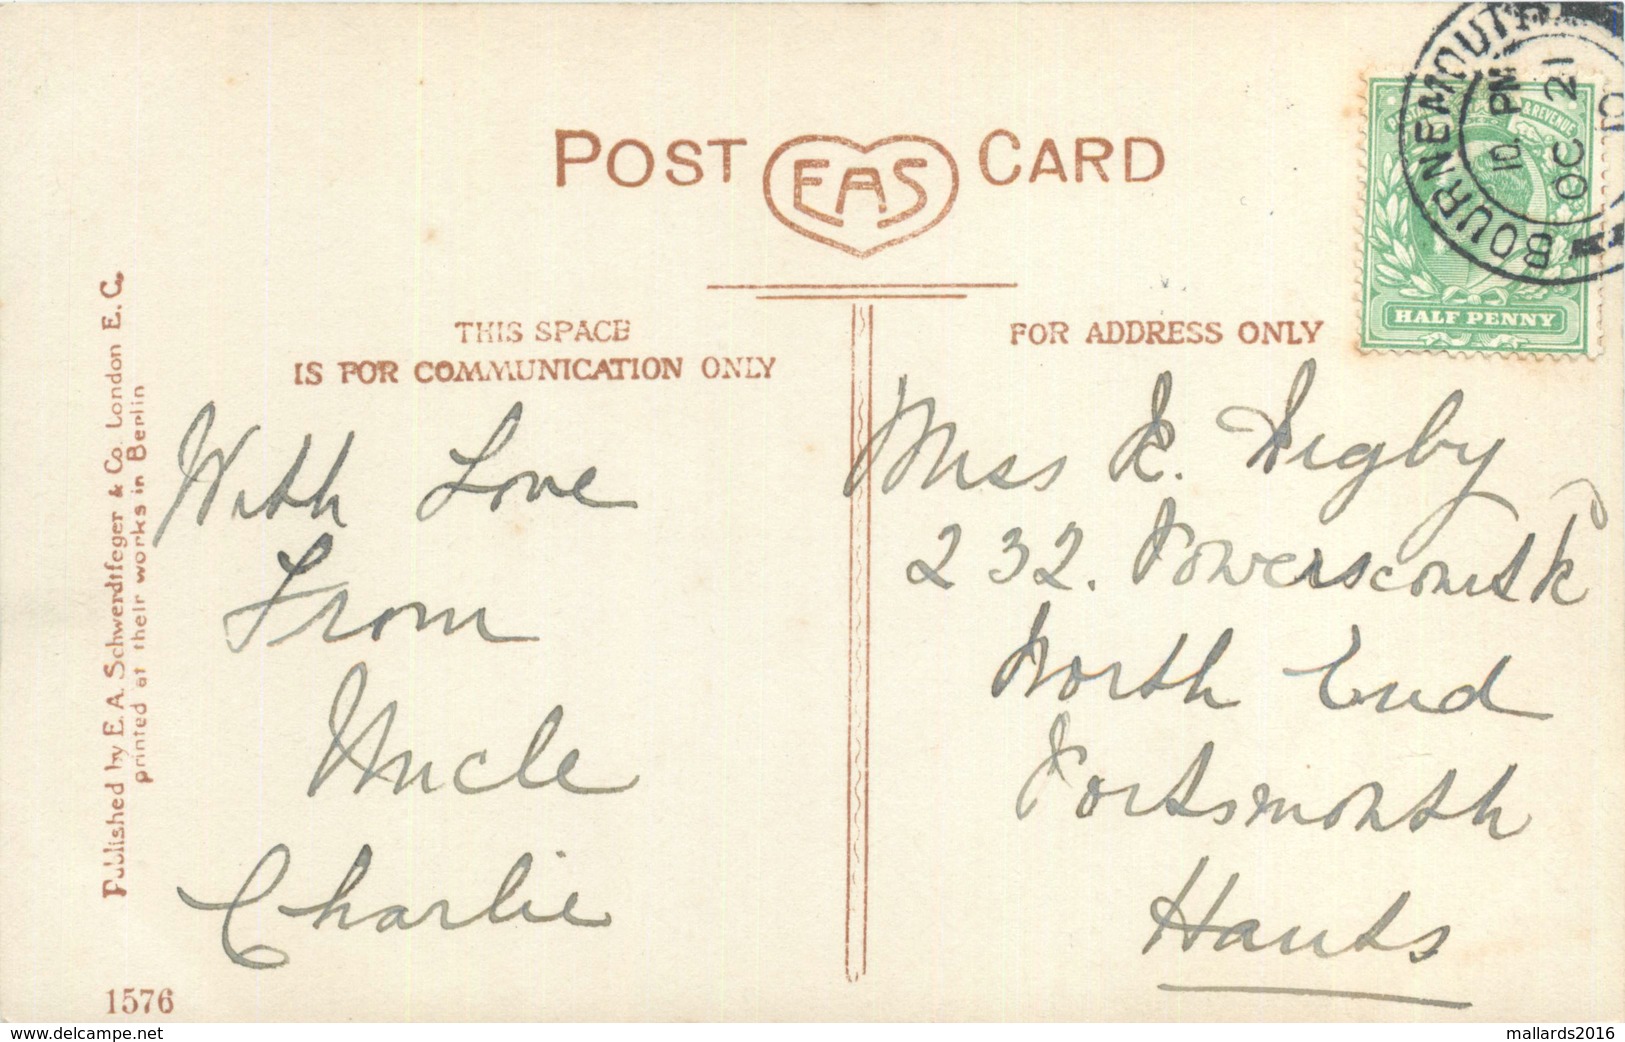 POST EAS CARD
THIS SPACE
IS FOR COMMUNICATION ONLY
FOR ADDRESS ONLY
BOURNEMOUTH
10. PM
OC 21
& REVENUE
HALF PENNY
With Love
From
Uncle
Charlie
Miss E. Digby
232. Powerscourt R
North End
Portsmouth
Hants
Published by E. A. Schwerdtfeger & Co. London E. C.
printed at their works in Berlin
1576
www.delcampe.net
mallards2016